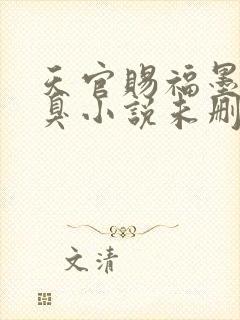 天官赐福墨
臭小说未删
文清